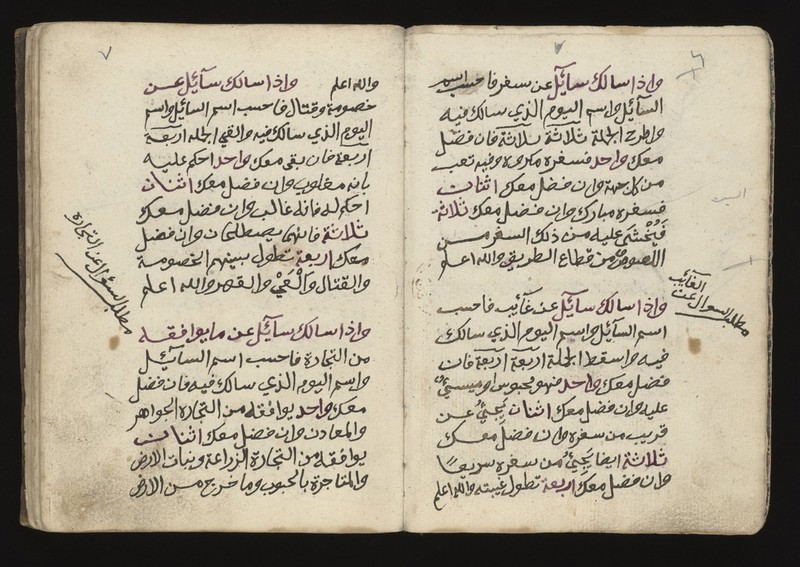 ٦
واذا سالك سآئل عن سفر فاحسب اسم
السآئل واسم اليوم الذي سالك فيه
واطرح الجملة ثلاثة ثلاثة فان فضل
معك واحد فسفره ما وفيه تعب
من كل جهة وان فضل معك اثنان
فسفره مبارك وان فضل معك ثلاثة
فَيُخْشَى عليه من ذلك السفر من
اللصوص من قطاع الطريق والله اعلم
واذا سالك سآئل عن غآئب فاحسب
اسم السآئل واسم اليوم الذي سالك
فيه واسقط الجملة اربعة اربعة فان
فضل معك واحد فهو محبوس او
عليه وان فضل معك اثنان يَجِيُ عن
قريب من سفره وان فضل معك
ثلاثة ايضا يَجِيُ من سفره سريعًا
وان فضل معك اربعة تطول غيبته والله اعلم
مطلب السوال عن
الغآئب
٧
والله اعلم واذا سالك سآئل عن
خصومة وقتال فاحسب اسم السآيل واسم
اليوم الذي سالك فيه والقي الجملة اربعة
اربعة فان بقى معك واحد احكم عليه
بانه مغلوب وان فضل معك اثنان
احكم له فانه غالب وان فضل معك
ثلاثة فانهما يصطلحان وان فضل
معك اربعة تطول بينهم الخصومة
والقتال والله اعلم
واذا سالك سآئل عن ما يوافقه
من التجارة فاحسب اسم السآئل
واسم اليوم الذي سالك فيه فان فضل
معك واحد يوافقه من التجارة الجواهر
والمعادن وان فضل معك اثنان
يوافقه من التجارة الزراعة ونبات الارض
والمتاجرة بالحبوب وما خرج من الارض
مطلب السوال عن التجارة